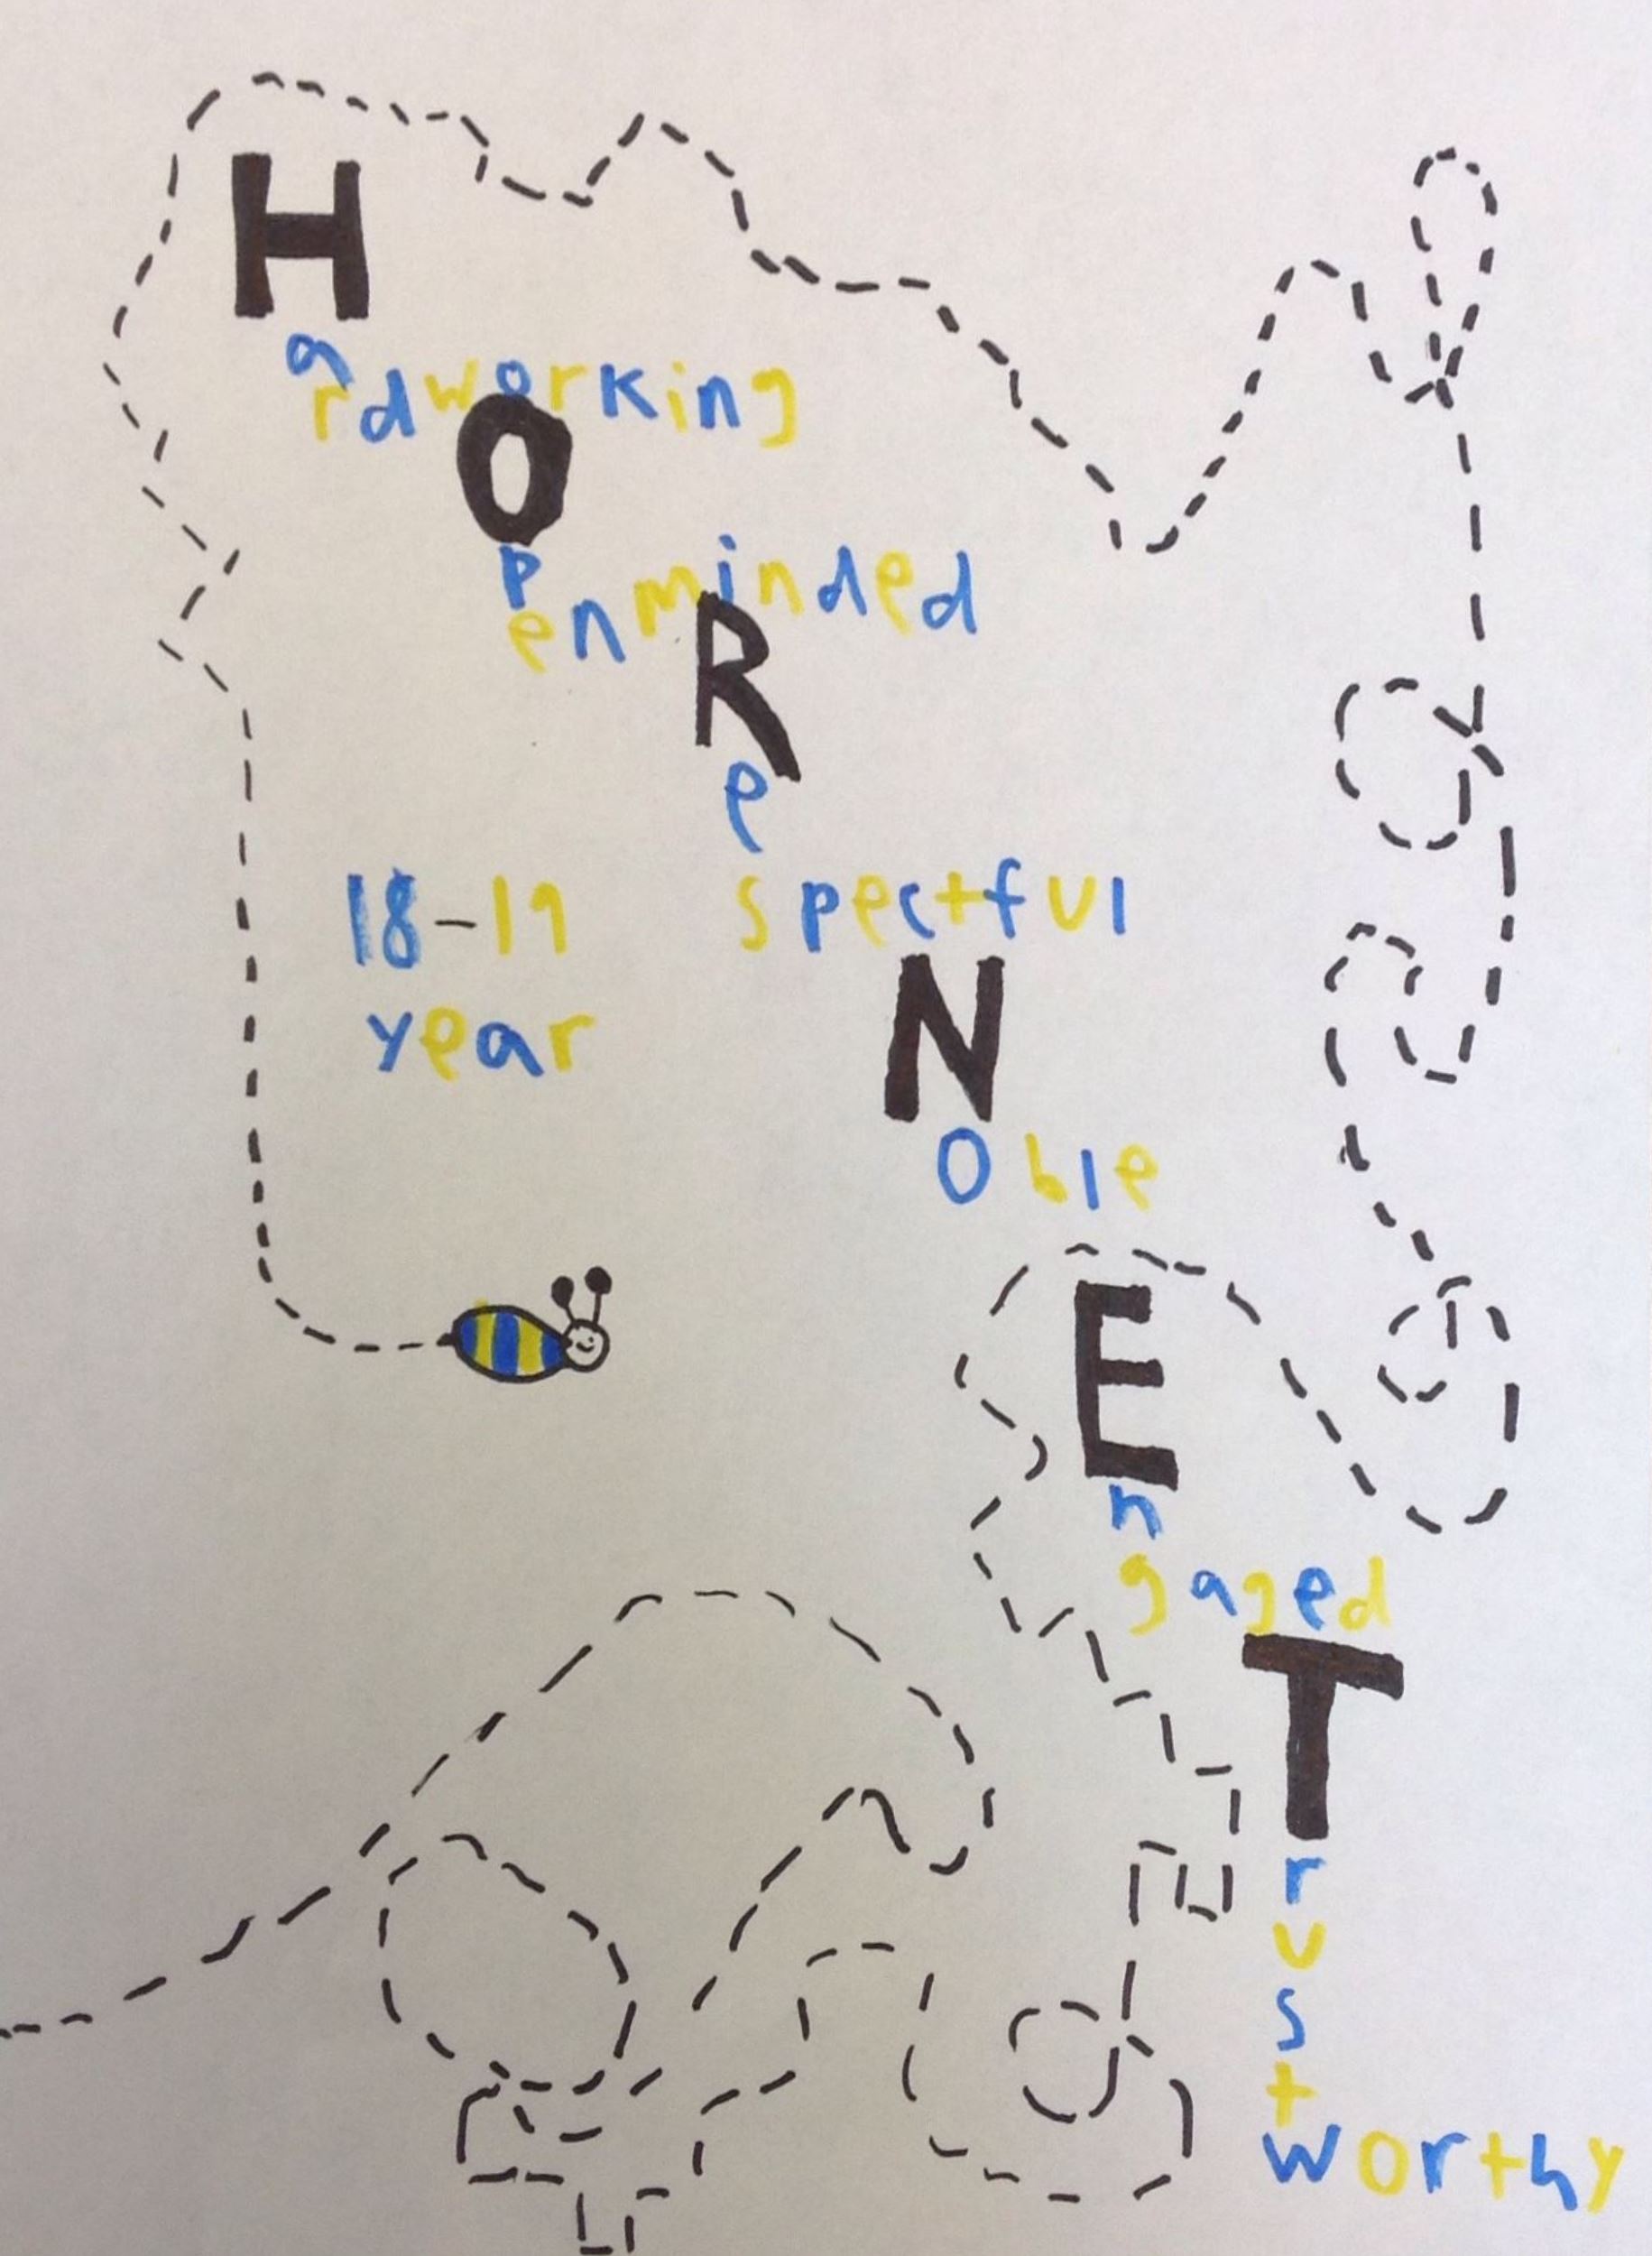 Hardworking
Openminded
Respectful
18-19
year
Noble
Engaged
Trustworthy